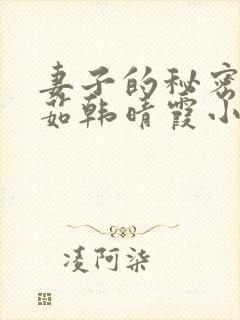 妻子的秘密
茹韩晴霞小
凌阿柒